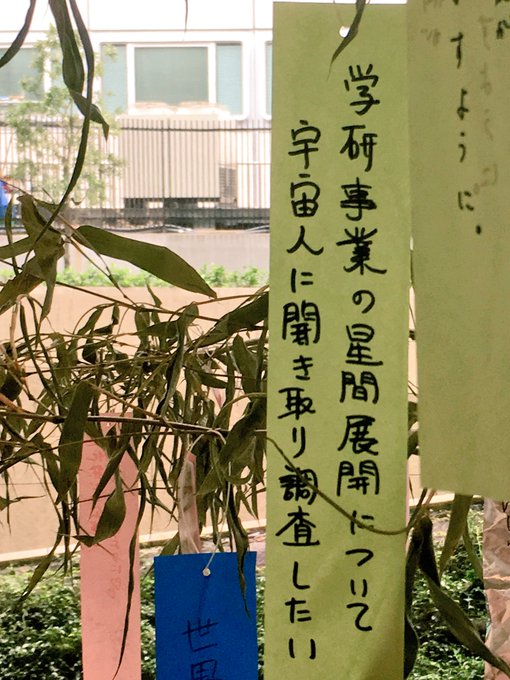 すように.
学研事業の星間展開について
宇宙人に聞き取り調査したい
世界